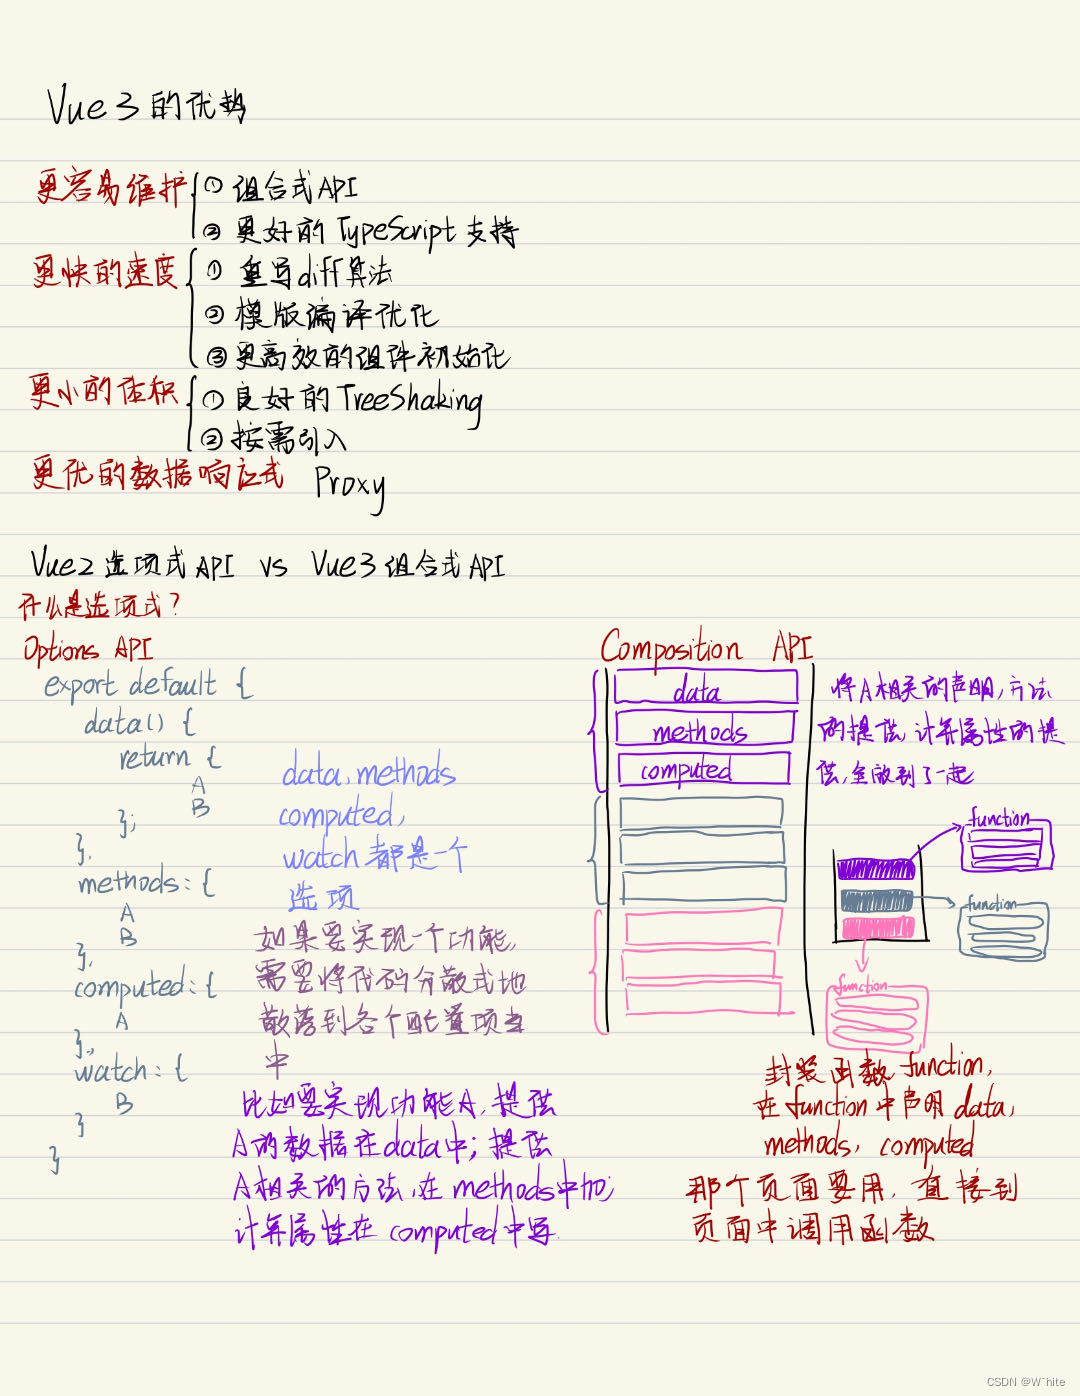 Vue3的优势
更容易维护
① 组合式API
② 更好的TypeScript支持
更快的速度
① 重写diff算法
② 模版编译优化
③ 更高效的组件初始化
更小的体积
① 良好的TreeShaking
② 按需引入
更优的数据响应式 Proxy
Vue2选项式API vs Vue3组合式API
什么是选项式?
Options API
export default {
data() {
return {
A
B
};
},
methods: {
A
B
},
computed: {
A
},
watch: {
B
}
}
data, methods
computed,
watch都是一个
选项
如果要实现一个功能,
需要将代码分散式地
散落到各个配置项当
中
比如要实现功能A, 提供
A的数据在data中; 提供
A相关的方法, 在methods中加;
计算属性在computed中写.
Composition API
data
methods
computed
将A相关的声明, 方法
的提供, 计算属性的提
供, 全放到了一起
function
function
function
封装函数function,
在function中声明data,
methods, computed
那个页面要用, 直接到
页面中调用函数
CSDN @W~hite